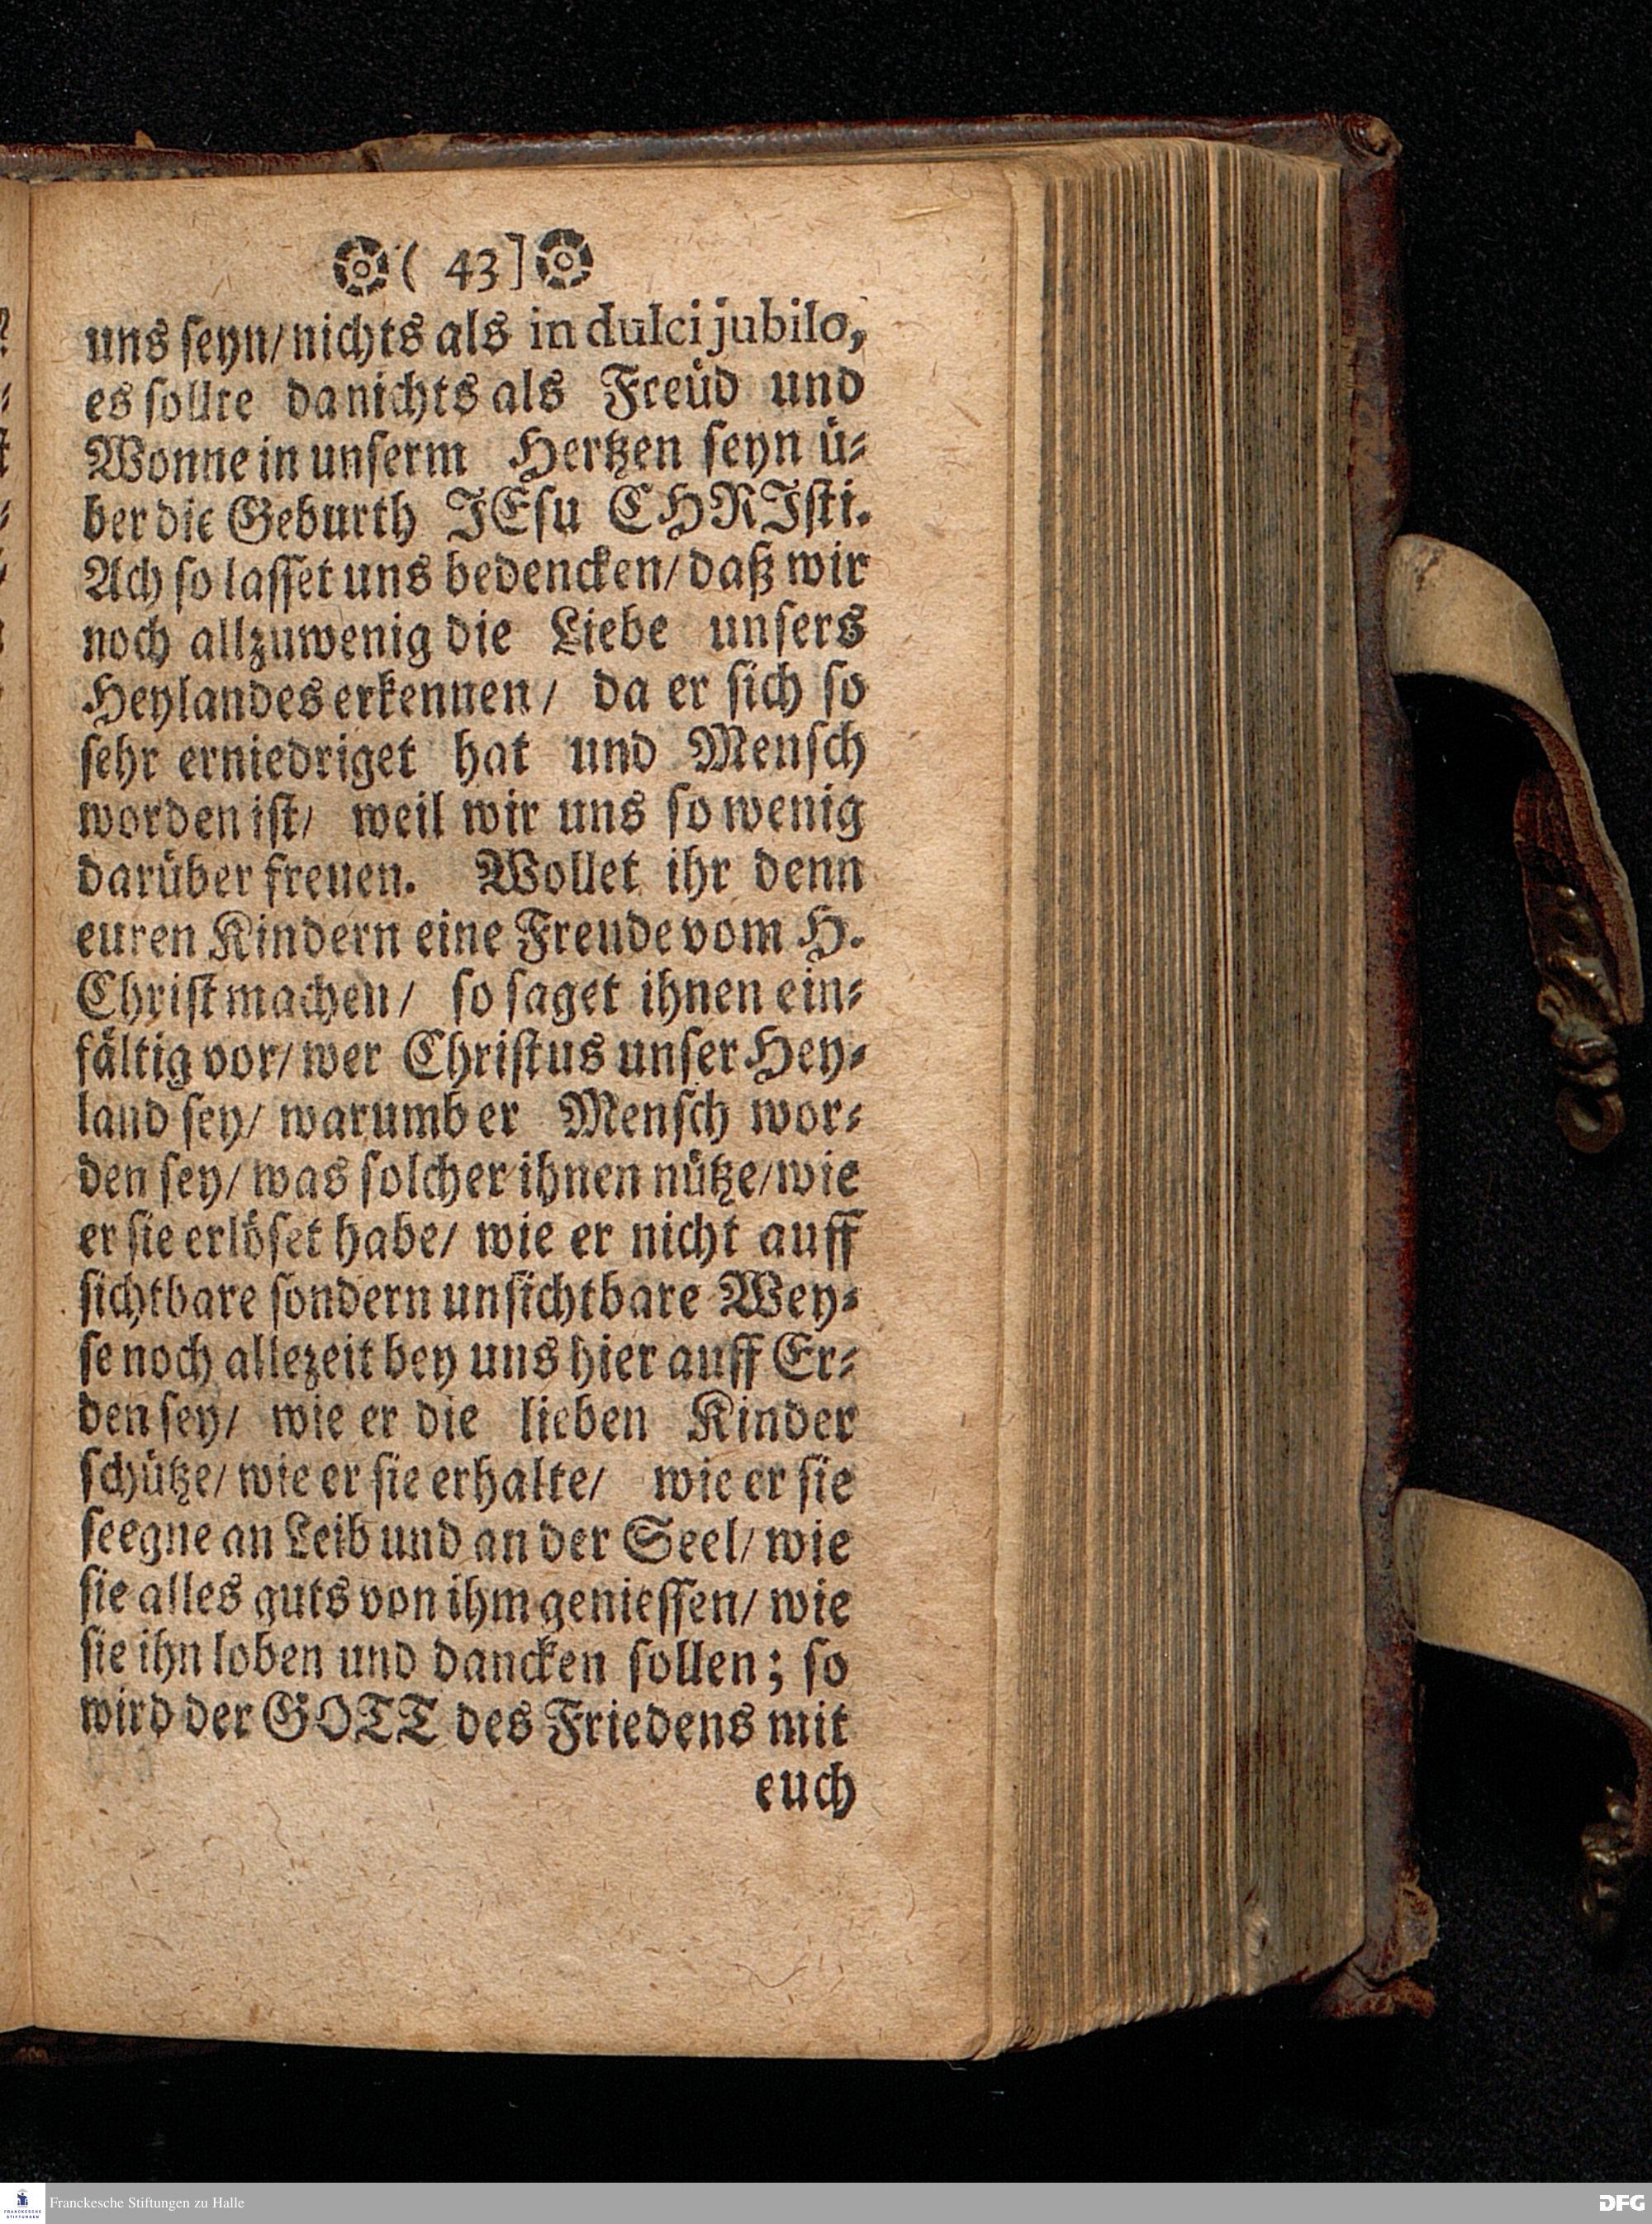 ( 43 ]
uns seyn/ nichts als in dulci jubilo,
es sollte da nichts als Freüd und
Wonne in unserm Hertzen seyn ü-
ber die Geburth JEsu CHRJsti.
Ach so lasset uns bedencken/ daß wir
noch allzuwenig die Liebe unsers
Heylandes erkennen/ da er sich so
sehr erniedriget hat und Mensch
worden ist/ weil wir uns so wenig
darüber freuen. Wollet ihr denn
euren Kindern eine Freude vom H.
Christ machen/ so saget ihnen ein-
fältig vor/ wer Christus unser Hey-
land sey/ warumb er Mensch wor-
den sey/ was solcher ihnen nütze/ wie
er sie erlöset habe/ wie er nicht auff
sichtbare sondern unsichtbare Wey-
se noch allezeit bey uns hier auff Er-
den sey/ wie er die lieben Kinder
schütze/ wie er sie erhalte/ wie er sie
seegne an Leib und an der Seel/ wie
sie alles guts von ihm geniessen/ wie
sie ihn loben und dancken sollen; so
wird der GOTT des Friedens mit
euch
Franckesche Stiftungen zu Halle
DFG